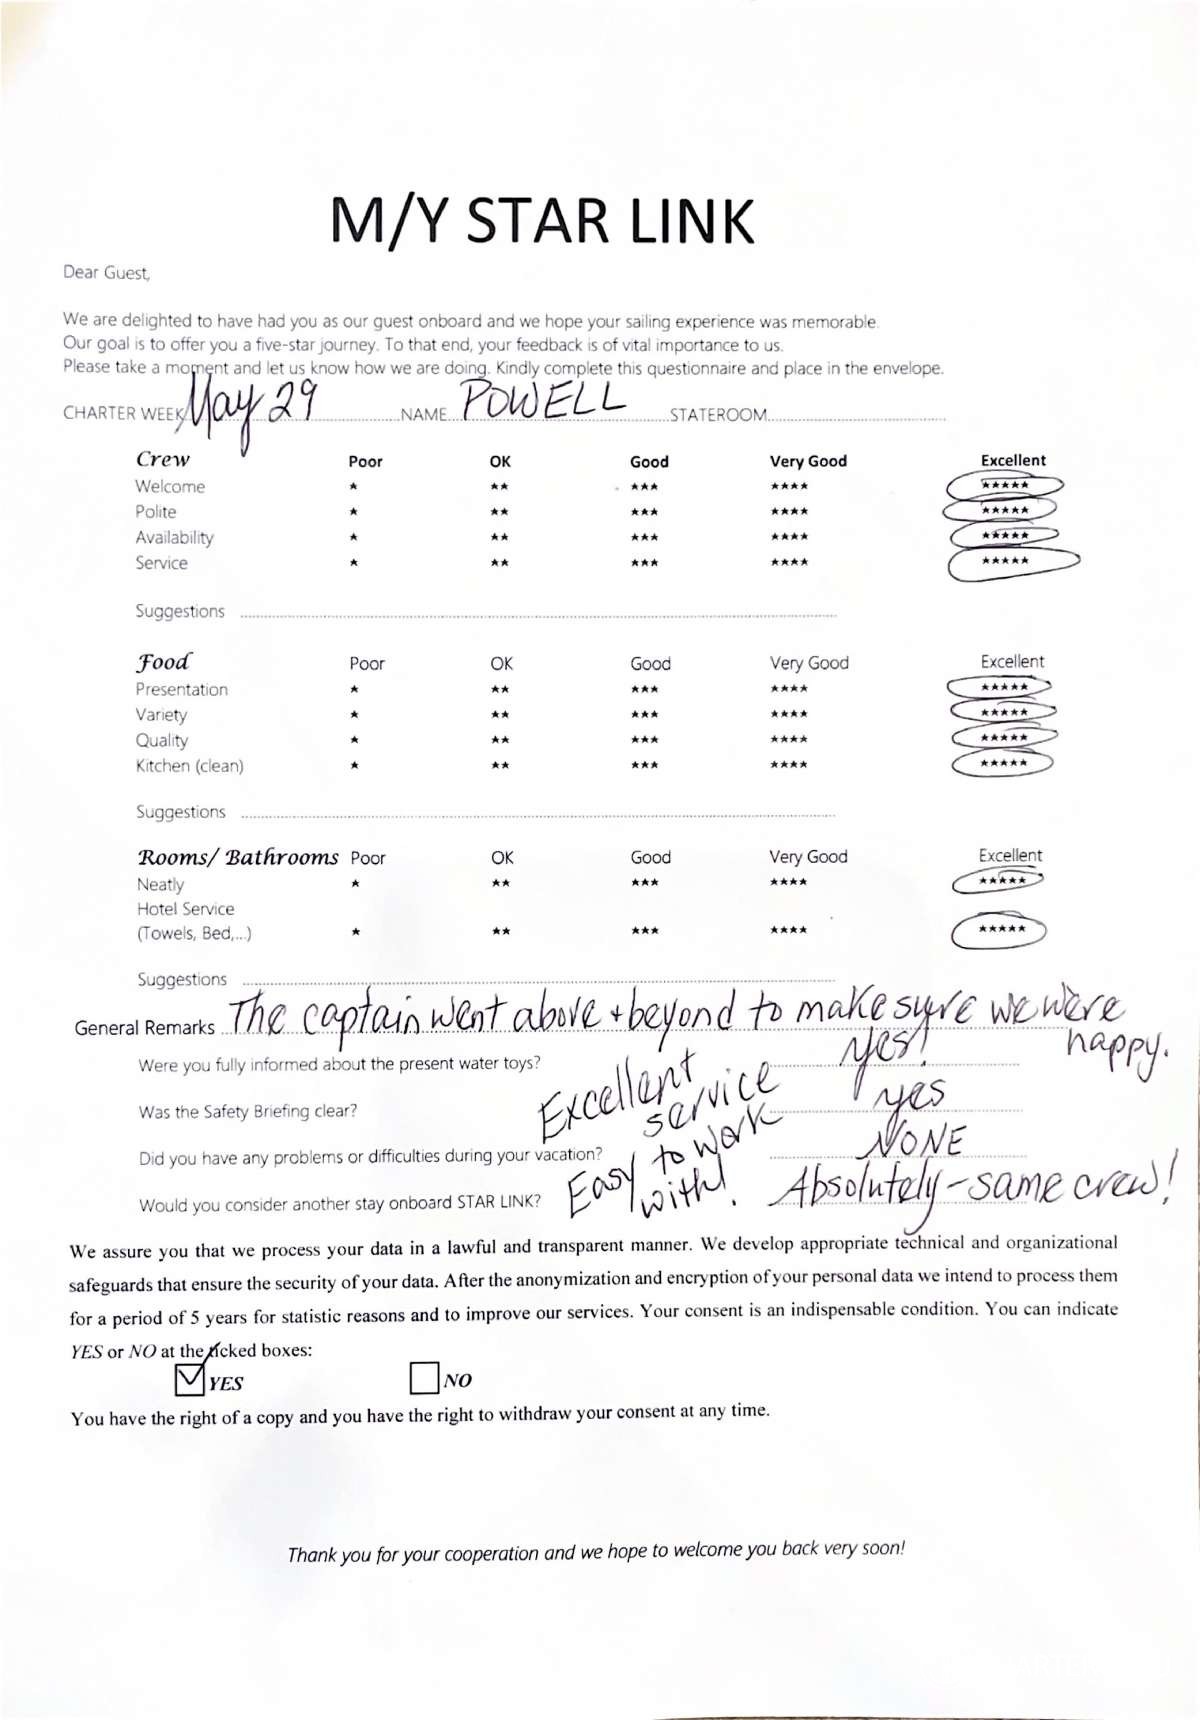 M/Y STAR LINK
Dear Guest,
We are delighted to have had you as our guest onboard and we hope your sailing experience was memorable.
Our goal is to offer you a five-star journey. To that end, your feedback is of vital importance to us.
Please take a moment and let us know how we are doing. Kindly complete this questionnaire and place in the envelope.
CHARTER WEEK May 29 NAME POWELL STATEROOM
Crew Poor OK Good Very Good Excellent
Welcome ★ ★★ ★★★ ★★★★ ★★★★★
Polite ★ ★★ ★★★ ★★★★ ★★★★★
Availability ★ ★★ ★★★ ★★★★ ★★★★★
Service ★ ★★ ★★★ ★★★★ ★★★★★
Suggestions
Food Poor OK Good Very Good Excellent
Presentation ★ ★★ ★★★ ★★★★ ★★★★★
Variety ★ ★★ ★★★ ★★★★ ★★★★★
Quality ★ ★★ ★★★ ★★★★ ★★★★★
Kitchen (clean) ★ ★★ ★★★ ★★★★ ★★★★★
Suggestions
Rooms/ Bathrooms Poor OK Good Very Good Excellent
Neatly ★ ★★ ★★★ ★★★★ ★★★★★
Hotel Service
(Towels, Bed,...) ★ ★★ ★★★ ★★★★ ★★★★★
Suggestions
General Remarks The captain went above + beyond to make sure we were
happy.
Were you fully informed about the present water toys? yes!
Excellent
service
Was the Safety Briefing clear? yes
Easy to work
with!
Did you have any problems or difficulties during your vacation? NONE
Would you consider another stay onboard STAR LINK? Absolutely - same crew!
We assure you that we process your data in a lawful and transparent manner. We develop appropriate technical and organizational
safeguards that ensure the security of your data. After the anonymization and encryption of your personal data we intend to process them
for a period of 5 years for statistic reasons and to improve our services. Your consent is an indispensable condition. You can indicate
YES or NO at the ticked boxes:
YES NO
You have the right of a copy and you have the right to withdraw your consent at any time.
Thank you for your cooperation and we hope to welcome you back very soon!